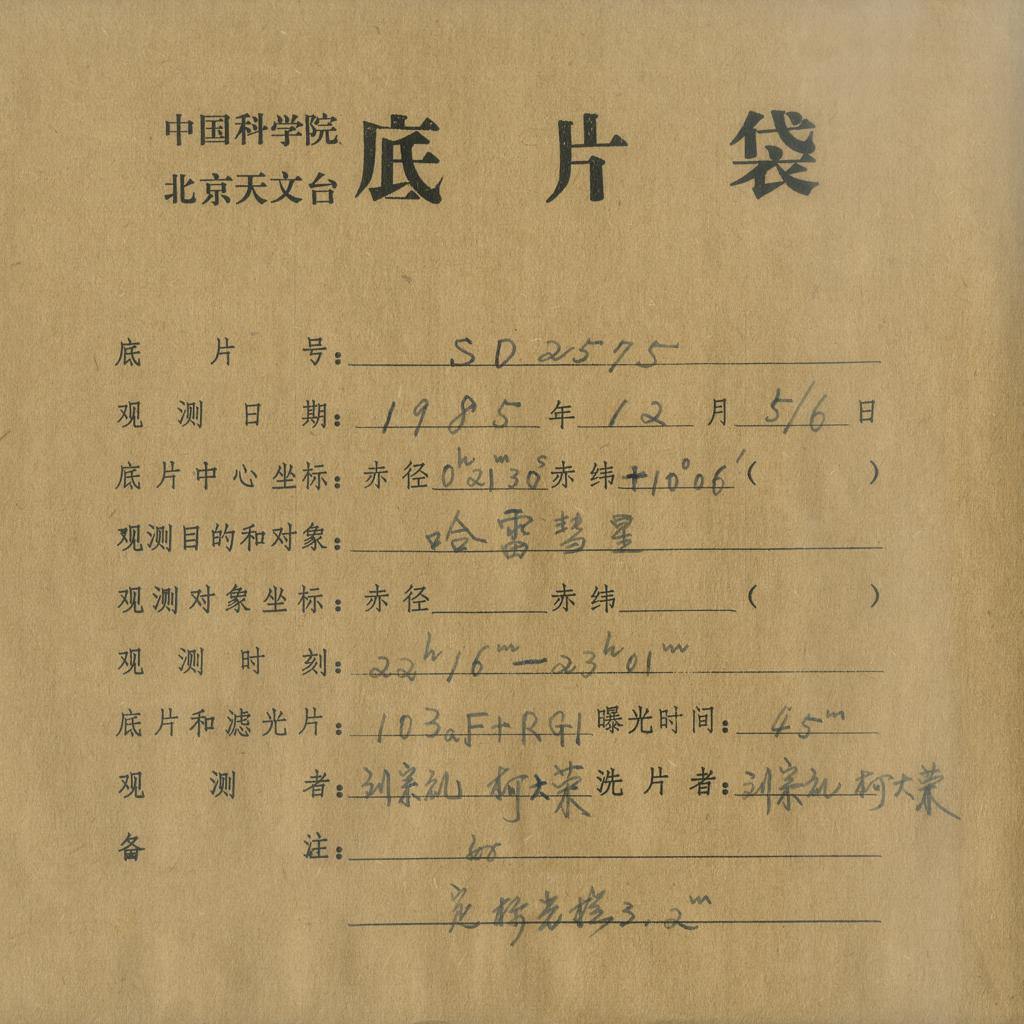 中国科学院
北京天文台
底片袋
底片号：SD2575
观测日期：1985年12月5/6日
底片中心坐标：赤径0ʰ21ᵐ30ˢ赤纬+10°06′（ ）
观测目的和对象：哈雷彗星
观测对象坐标：赤径 赤纬 （ ）
观测时刻：22ʰ16ᵐ—23ʰ01ᵐ
底片和滤光片：103aF+RG1曝光时间：45ᵐ
观测者：刘宗礼 柯大荣洗片者：刘宗礼 柯大荣
备注：
定标光楔3.2ᵐ